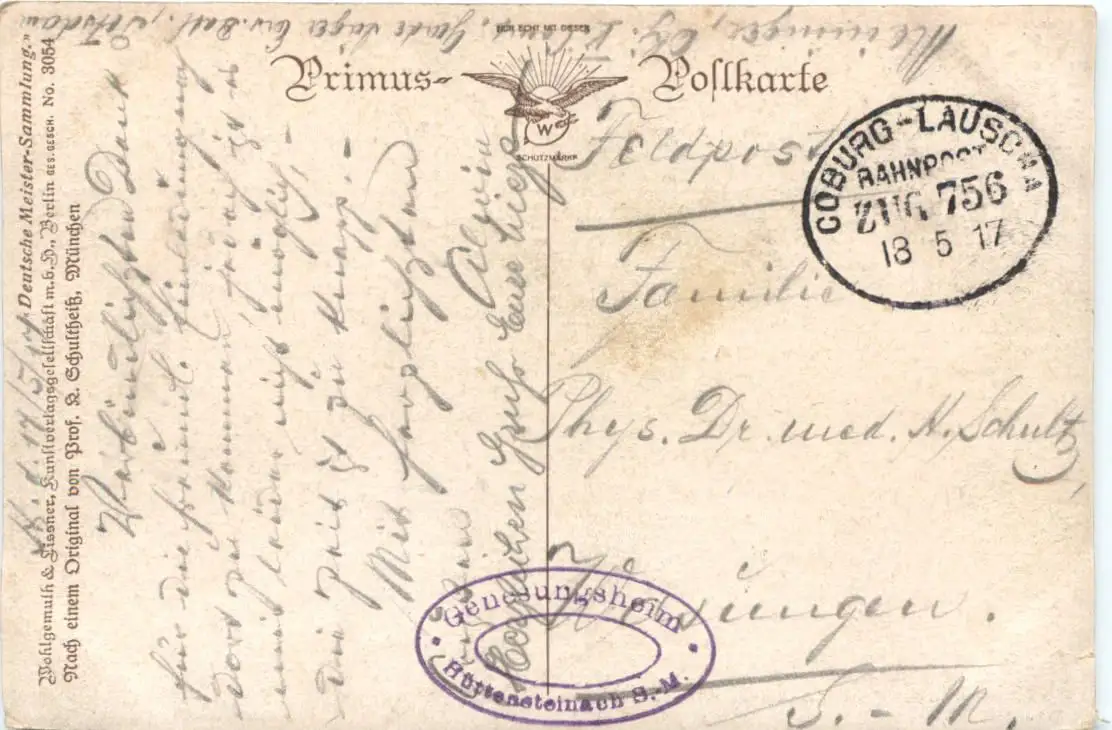 NUR ECHT MIT DIESER
Primus-Postkarte
W
SCHUTZMARKE
Wohlgemuth & Lissner, Kunstverlagsgesellschaft m.b.H., Berlin GES. GESCH. No. 3054
„Deutsche Meister-Sammlung."
Nach einem Original von Prof. K. Schultheiß, München
17/5/17
Verbindlichsten Dank
für die freundl. Einladung,
dort zu kommen, jedoch ist es
mir leider nicht möglich –
die Zeit ist zu knapp. –
Mit herzlichstem
Alwin
Herzlichen Gruß Eure Liesel
Feldpost
Familie
Phys. Dr. med. H. Schultz,
Wasungen.
S.-M.
COBURG-LAUSCHA
BAHNPOST
ZUG 756
18 5 17
Genesungsheim
Hüttensteinach S.-M.